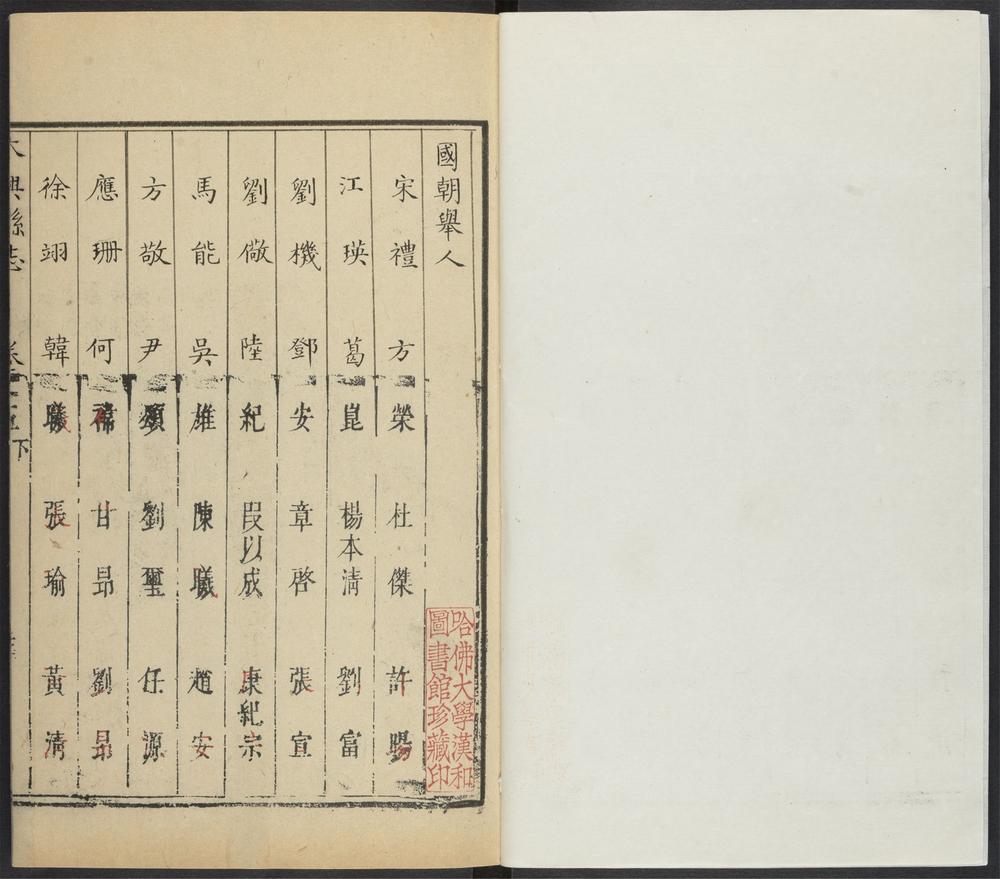 國朝舉人
宋禮 方榮 杜傑 許暘
江瑛 葛崑 楊本清 劉富
劉機 鄧安 章啓 張宣
劉儆 陸紀 段以成 康紀宗
馬能 吳雄 陳曦 趙安
方敬 尹頌 劉璽 任源
應珊 何 甘昂 劉昂
徐翊 韓曦 張瑜 黃清
大興縣志 卷
下
哈佛大學漢和
圖書館珍藏印